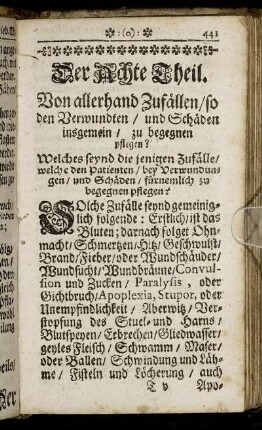 :(o): 441
Der Achte Theil.
Von allerhand Zufällen/ so
den Verwundten/ und Schäden
insgemein/ zu begegnen
pflegen?
Welches seynd die jenigen Zufälle/
welche den Patienten/ bey Verwundun-
gen/ und Schäden/ fürnemlich zu
begegnen pflegen?
SOlche Zufälle seynd gemeinig-
lich folgende: Erstlich/ ist das
Bluten; darnach folget Ohn-
macht/ Schmertzen/ Hitz/ Geschwulst/
Brand/ Fieber/ oder Wundschäuder/
Wundsucht/ Wundbräune/ Convul-
sion und Zucken/ Paralysis, oder
Gichtbruch/ Apoplexia, Stupor, oder
Unempfindlichkeit/ Aberwitz/ Ver-
stopfung des Stuel- und Harns/
Blutspeyen/ Erbrechen/ Gliedwasser/
geyles Fleisch/ Schwamm/ Maser/
oder Ballen/ Schwindung und Läh-
me/ Fisteln und Löcherung/ auch
T v Apo-